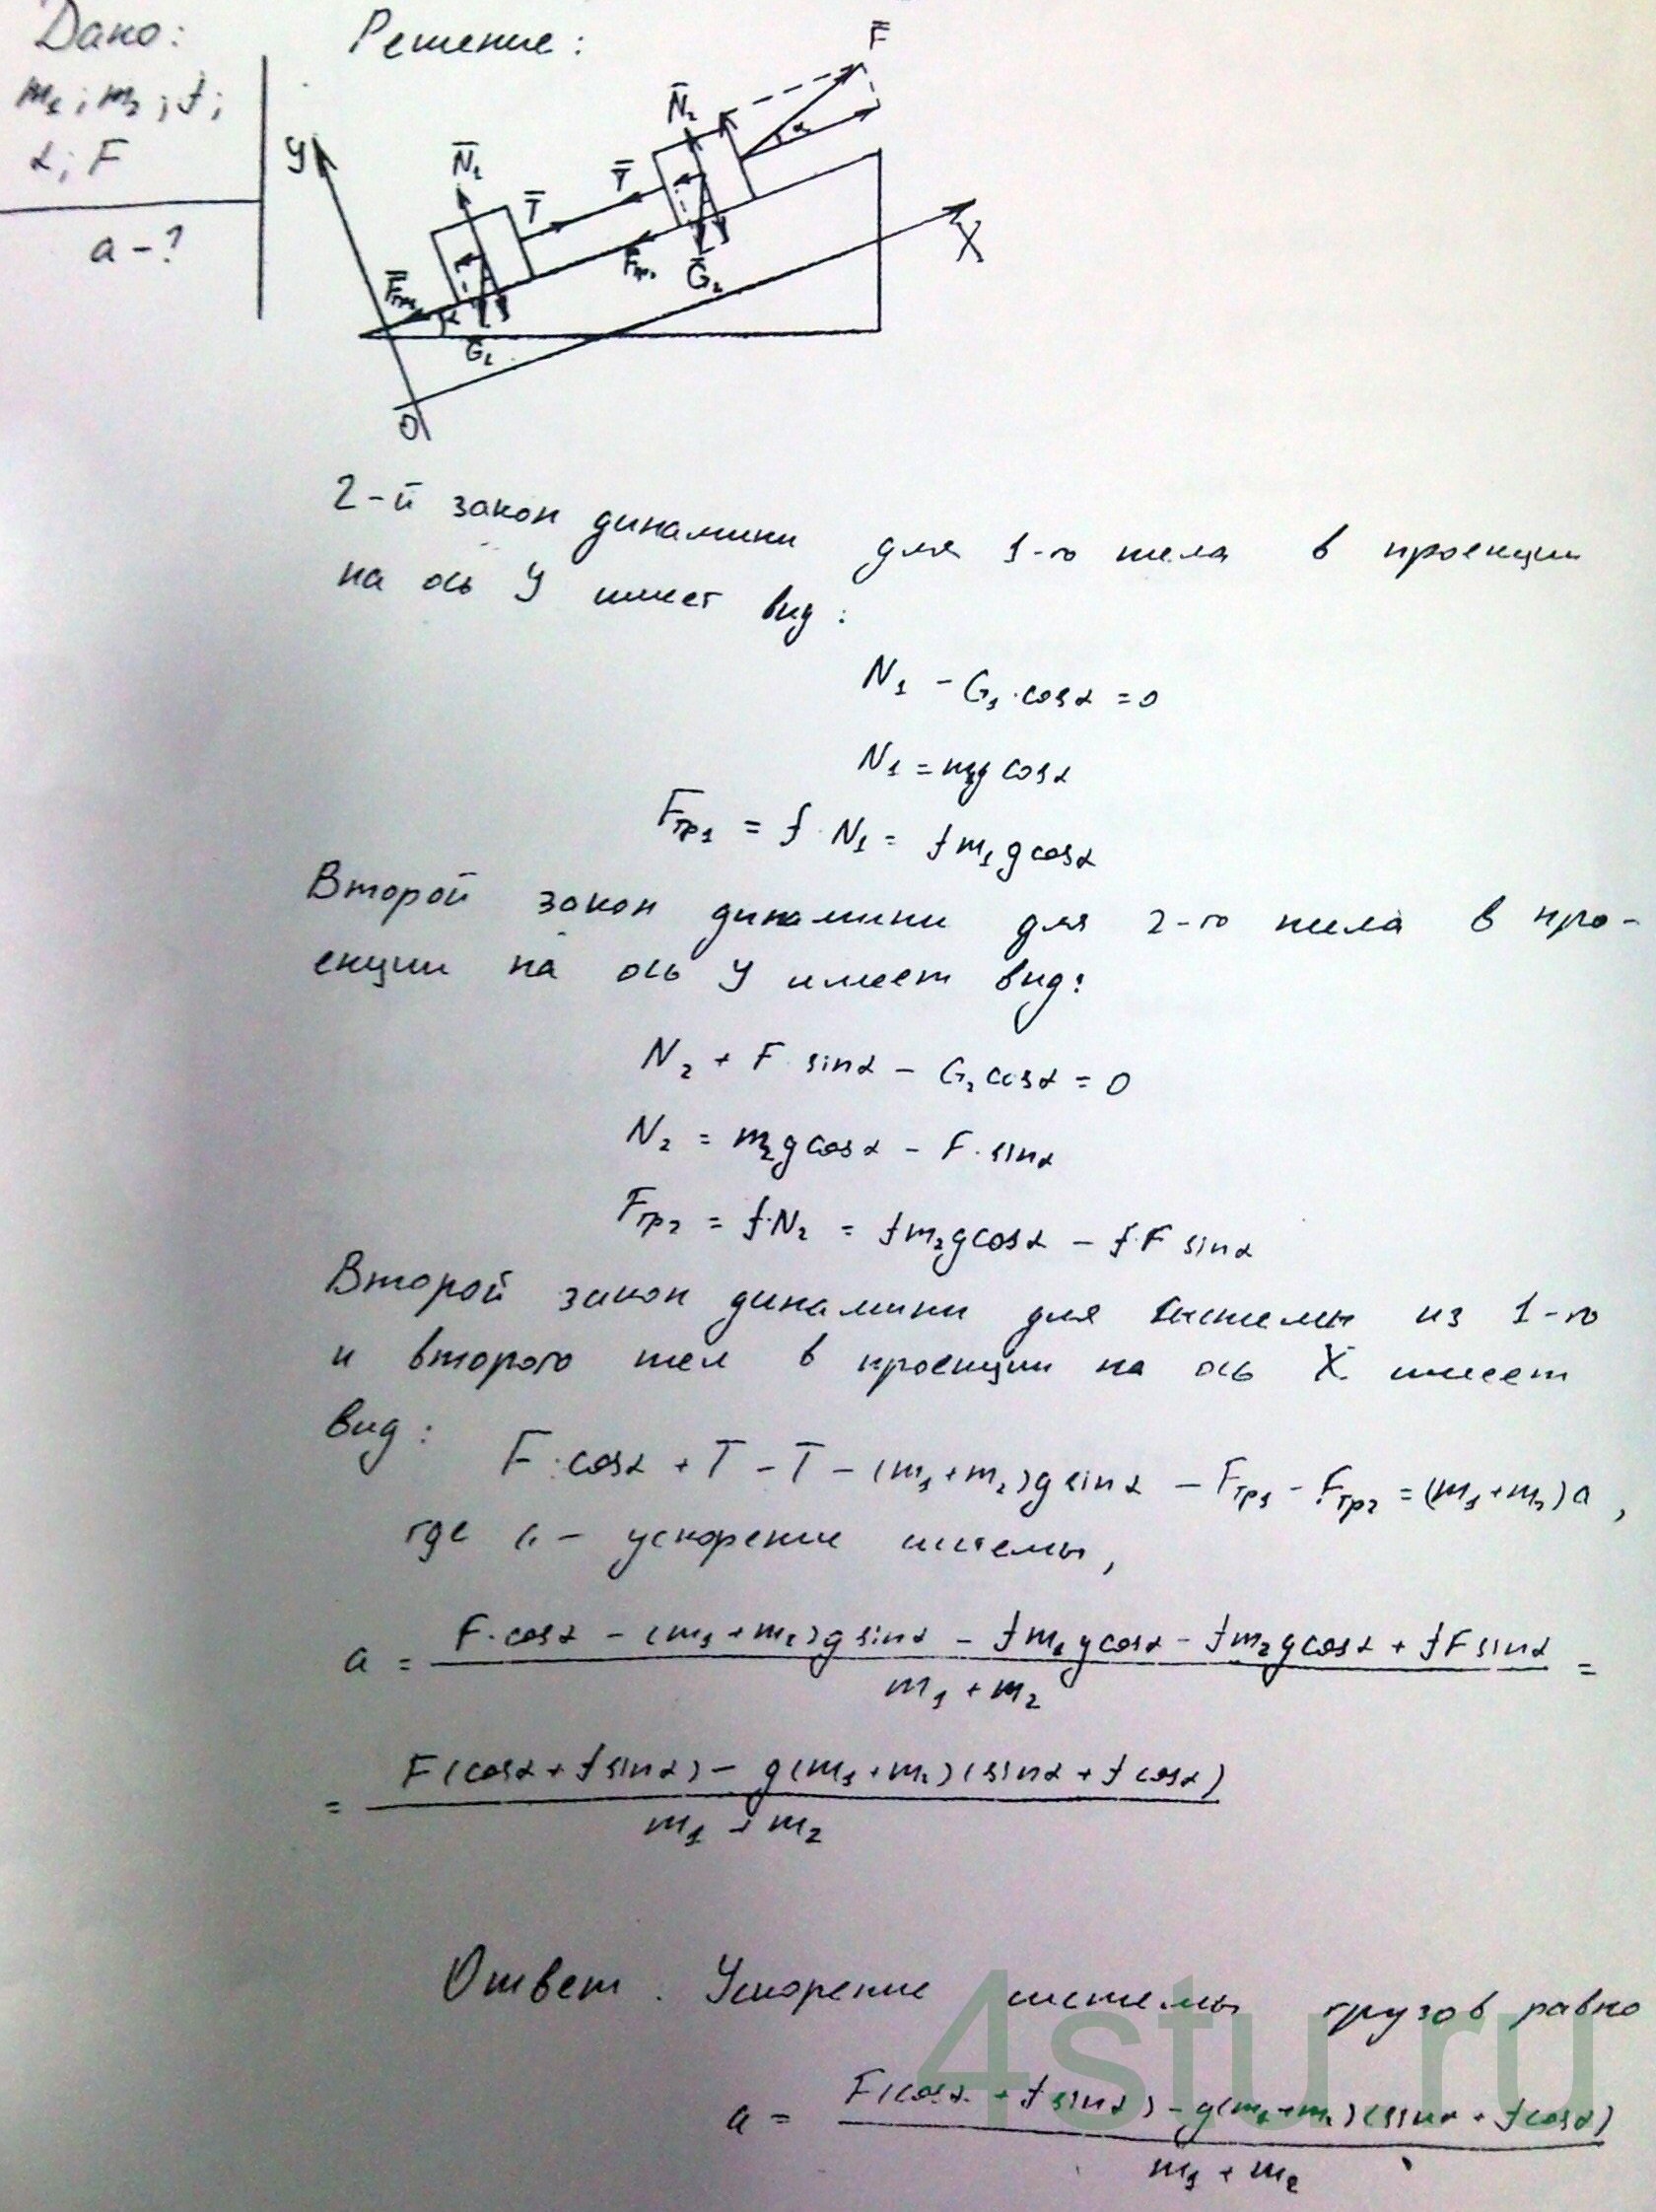 Дано:
m₁; m₂; f;
α; F
a - ?
Решение:
F̄
N̄₂
α
y
N̄₁
T̄
T̄
X
F̄тр₁
α
Fтр₂
Ḡ₂
Ḡ₁
O
2-й закон динамики для 1-го тела в проекции
на ось y имеет вид:
N₁ - G₁·cosα = 0
N₁ = m₁g cosα
Fтр₁ = f·N₁ = fm₁gcosα
Второй закон динамики для 2-го тела в про-
екции на ось y имеет вид:
N₂ + F·sinα - G₂cosα = 0
N₂ = m₂gcosα - F·sinα
Fтр₂ = f·N₂ = fm₂gcosα - f·F sinα
Второй закон динамики для системы из 1-го
и второго тел в проекции на ось X имеет
вид: F·cosα + T - T - (m₁+m₂)g sinα - Fтр₁ - Fтр₂ = (m₁+m₂)a,
где a - ускорение системы,
a = (F·cosα - (m₁+m₂)g sinα - fm₁gcosα - fm₂gcosα + fF sinα) / (m₁ + m₂) =
= (F(cosα + f sinα) - g(m₁+m₂)(sinα + f cosα)) / (m₁ + m₂)
Ответ. Ускорение системы грузов равно
a = (F(cosα + f sinα) - g(m₁+m₂)(sinα + f cosα)) / (m₁ + m₂)
4stu.ru